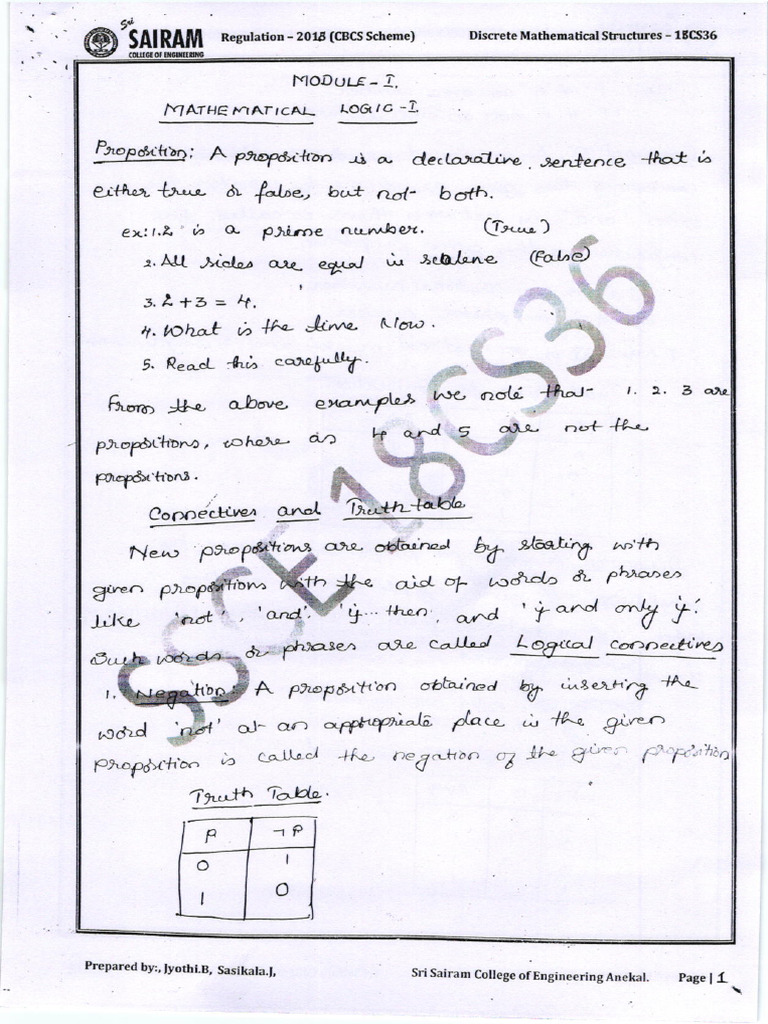 Sri
SAIRAM
COLLEGE OF ENGINEERING
Regulation – 2018 (CBCS Scheme)
Discrete Mathematical Structures – 18CS36
MODULE-I.
MATHEMATICAL LOGIC-I
Proposition: A proposition is a declarative sentence that is
either true or false, but not both.
ex: 1. 2 is a prime number. (True)
2. All sides are equal in scalene (False)
3. 2+3 = 4.
4. What is the time Now.
5. Read this carefully.
From the above examples we note that 1. 2. 3 are
propositions, where as 4 and 5 are not the
propositions.
Connectives and Truth table
New propositions are obtained by starting with
given propositions with the aid of words or phrases
like 'not', 'and', 'if... then, and 'if and only if'.
Such words or phrases are called Logical connectives
1. Negation: A proposition obtained by inserting the
word 'not' at an appropriate place in the given
proposition is called the negation of the given proposition
Truth Table.
P ¬P
0 1
1 0
SSCE 18CS36
Prepared by:, Jyothi.B, Sasikala.J,
Sri Sairam College of Engineering Anekal.
Page | 1